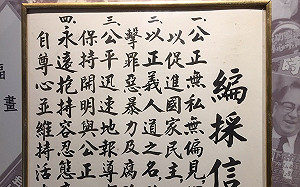 編採信
一.公正無私無偏見
以促進國家民主
二.以正義人道之名
擊罪惡暴力及腐
三.公平迅速地報導
保持開明與公正
四.永遠抱持容忍態
自尊心並維持活
福
畫